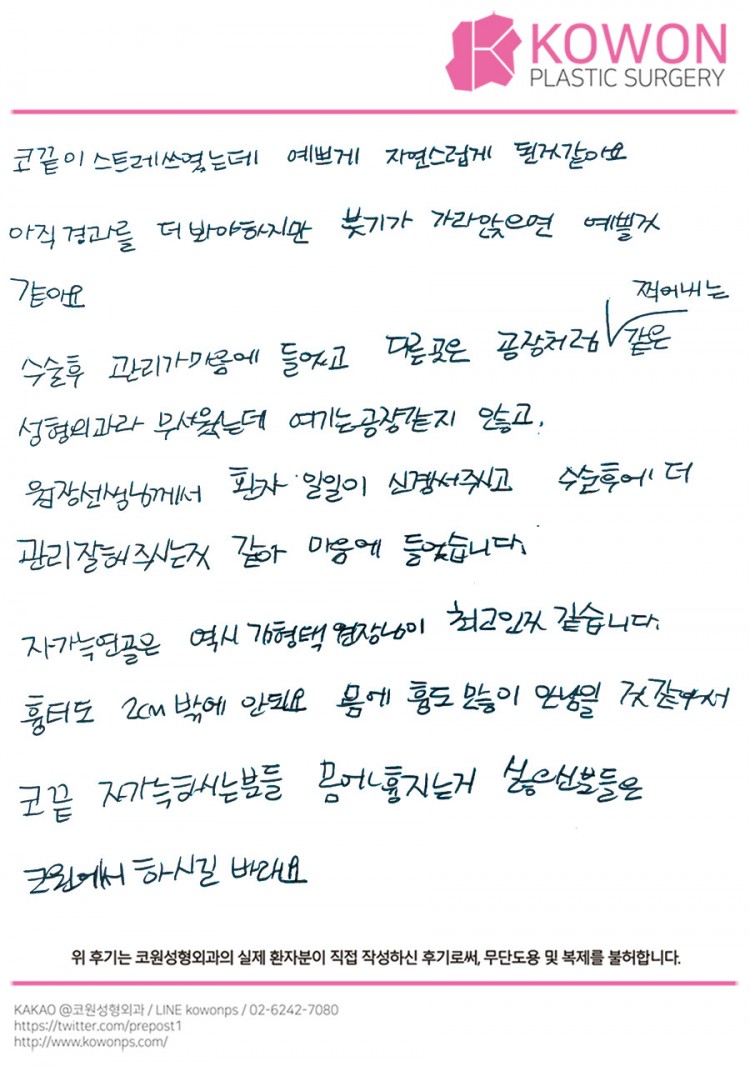 KOWON
PLASTIC SURGERY
코끝이 스트레쓰였는데 예쁘게 자연스럽게 된거같아요
아직 경과를 더 봐야하지만 붓기가 가라앉으면 예쁠것
같아요
찍어내는
수술후 관리가 마음에 들었고 다른곳은 공장처럼 같은
성형외과라 무서웠는데 여기는 공장같지 않고.
원장선생님께서 환자 일일이 신경써주시고 수술후에 더
관리잘해주시는것 같아 마음에 들었습니다.
자가늑연골은 역시 김형택 원장님이 최고인것 같습니다.
흉터도 2cm 밖에 안되요 몸에 흉도 많이 안남을 것 같아서
코끝 자가늑하시는분들 몸에 흉지는거 싫으신분들은
코원에서 하시길 바래요
위 후기는 코원성형외과의 실제 환자분이 직접 작성하신 후기로써, 무단도용 및 복제를 불허합니다.
KAKAO @코원성형외과 / LINE kowonps / 02-6242-7080
https://twitter.com/prepost1
http://www.kowonps.com/